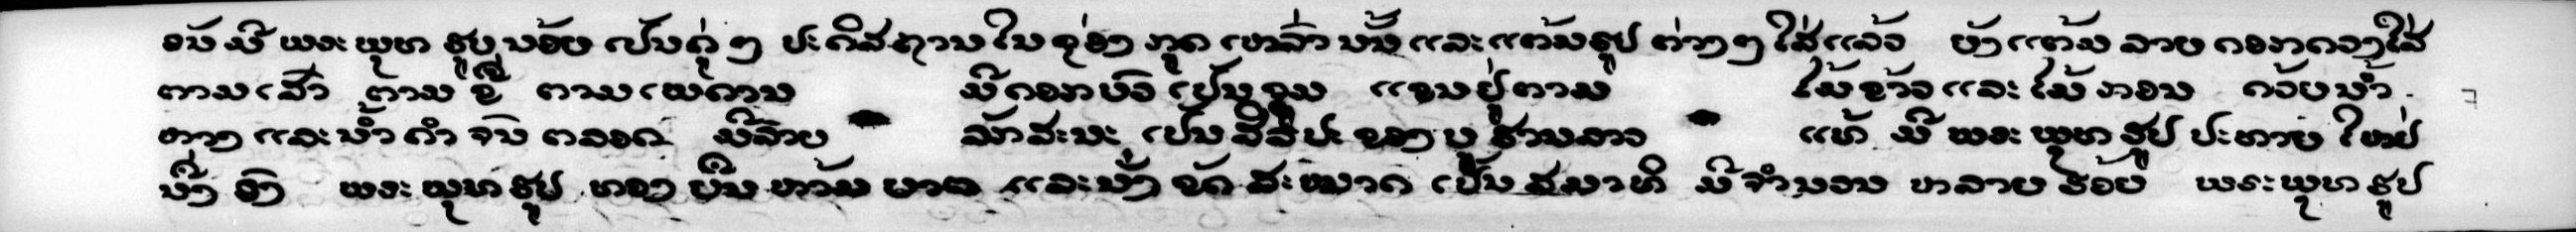 ອນັມີພຣະພຸທຮູບນ້ອຍເປັນຄູ່ໆ ປະດິສຖານໃນຊ່ອງກູດເຫລົ່ານນັ້ ແລະແຕ້ມຮູປຕ່າງໆໃສ່ແລ້ວ ຍັງແຕ້ມລາຍດອກດວງໃສ່
ຕາມເສົາ ຕາມຂື່ ຕາມເພດານ ມີດອກບົວເປັນຈຸມ ແຂນຢູ່ຕາມ ໄມ້ຂ້າວແລະໄມ້ກອນ ດ້ວຍນ້ຳ
ຫາງ ແລະນ້ຳຄຳຈນົຕລອດ ມີລາຍ ລັກສະນະ ເປັນສິລປະຂອງບູຮານລາວ ແທ້ ມີພຣະພຸທຮູປປະທານໃຫຍ່
ນັ່ງອົງ ພຣະພຸທຮູປທອງປືນຫ້າມມາລ ແລະນັ່ງຂັດສະໝາດເປັນສມາທິ ມີຈຳນວນຫລາຍຮ້ອຍ ພຣະພຸທຮູປ